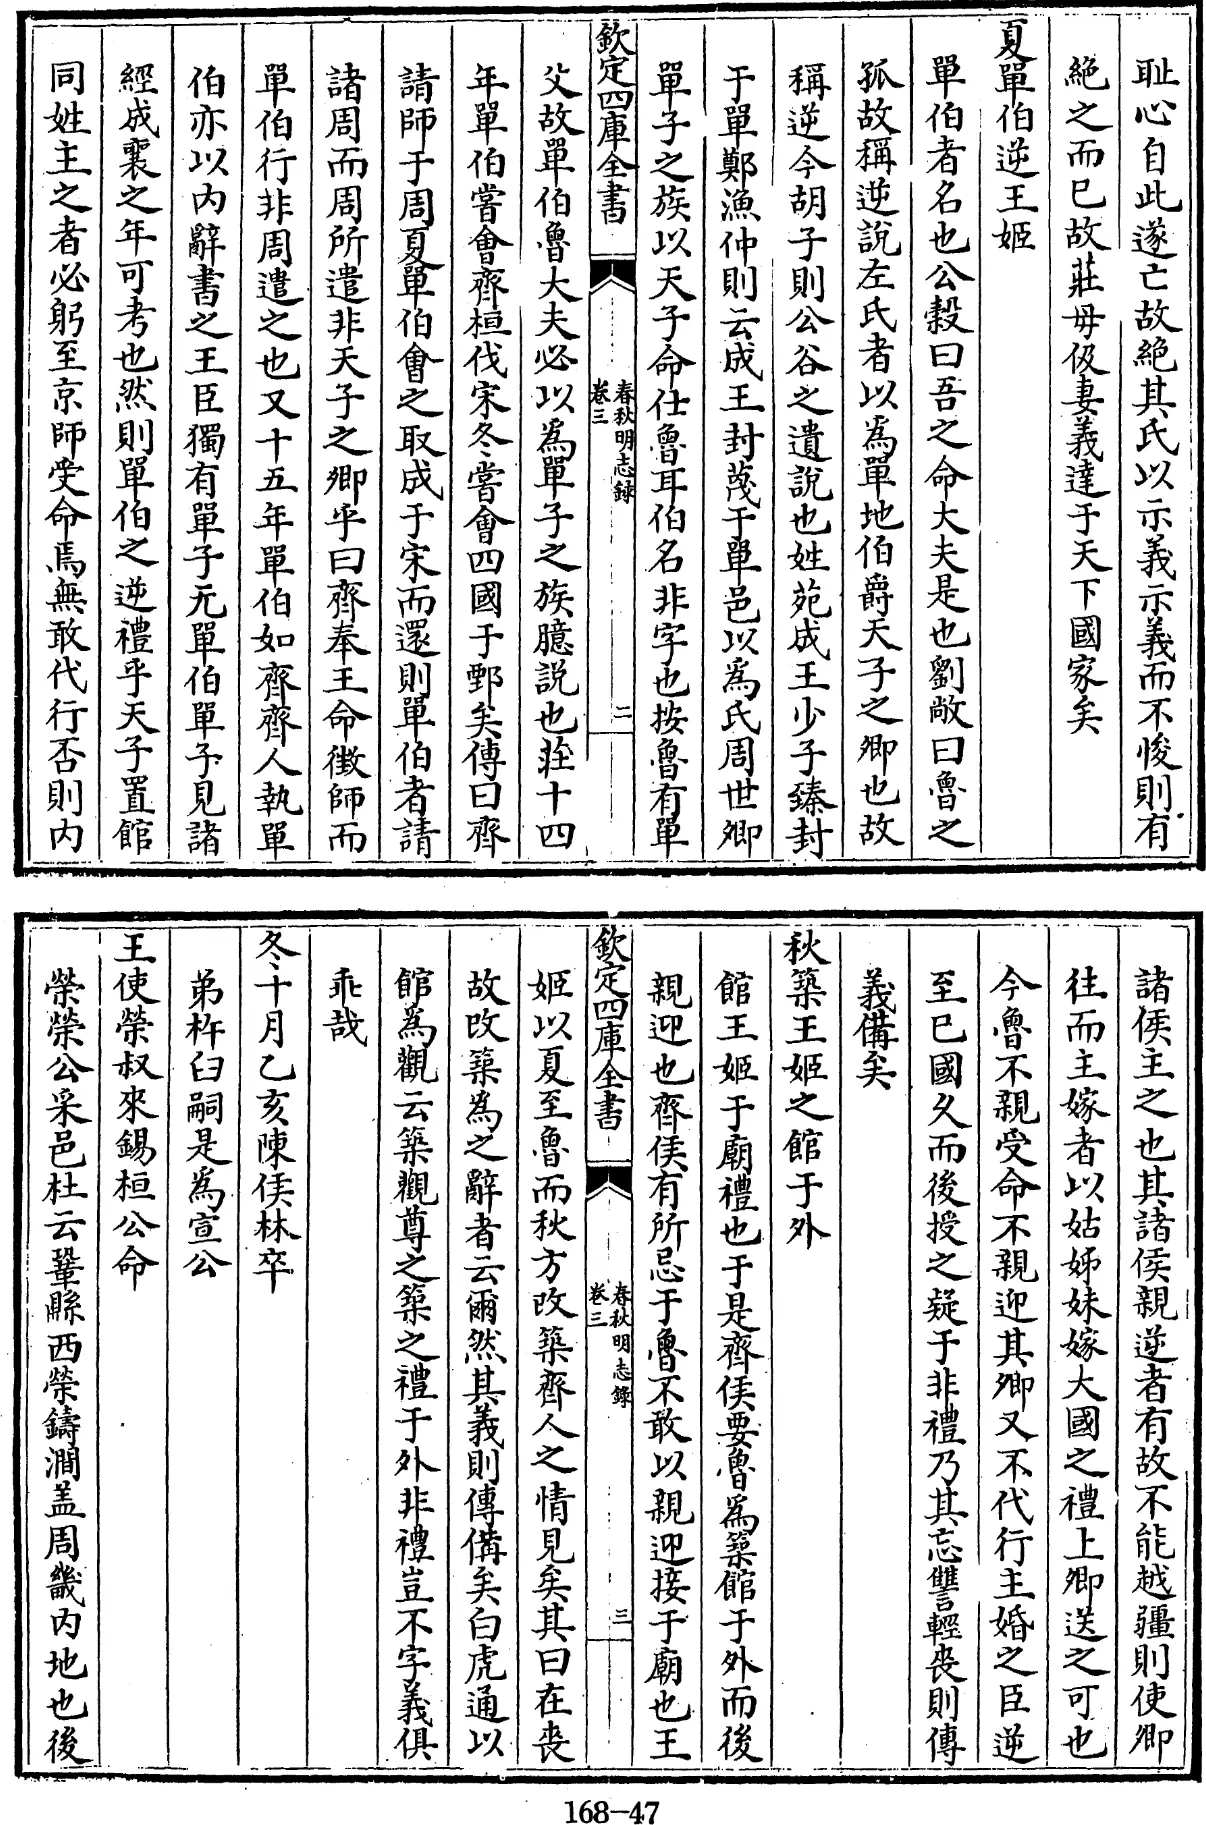 耻心自此遂亡故絶其氏以示義示義而不悛則有
絶之而已故莊毋伋妻義達于天下國家矣
夏單伯逆王姬
單伯者名也公糓曰吾之命大夫是也劉敞曰魯之
孤故稱逆說左氏者以為單地伯爵天子之卿也故
稱逆今胡子則公谷之遺說也姓苑成王少子臻封
于單鄭漁仲則云成王封蔑于單邑以為氏周世卿
單子之族以天子命仕魯耳伯名非字也按魯有單
欽定四庫全書
春秋明志録
卷三
二
父故單伯魯大夫必以為單子之族臆說也莊十四
年單伯嘗會齊桓伐宋冬嘗會四國于鄄矣傳曰齊
請師于周夏單伯會之取成于宋而還則單伯者請
諸周而周所遣非天子之卿乎曰齊奉王命徵師而
單伯行非周遣之也又十五年單伯如齊齊人執單
伯亦以内辭書之王臣獨有單子无單伯單子見諸
經成襄之年可考也然則單伯之逆禮乎天子置館
同姓主之者必躬至京師受命焉無敢代行否則内
諸侯主之也其諸侯親逆者有故不能越疆則使卿
往而主嫁者以姑姊妹嫁大國之禮上卿送之可也
今魯不親受命不親迎其卿又不代行主婚之臣逆
至已國久而後授之疑于非禮乃其忘讐輕喪則傳
義備矣
秋築王姬之館于外
館王姬于廟禮也于是齊侯要魯為築館于外而後
親迎也齊侯有所忌于魯不敢以親迎接于廟也王
欽定四庫全書
春秋明志錄
卷三
三
姬以夏至魯而秋方改築齊人之情見矣其曰在喪
故改築為之辭者云爾然其義則傳備矣白虎通以
館為觀云築觀尊之築之禮于外非禮豈不字義俱
乖哉
冬十月乙亥陳侯林卒
弟杵臼嗣是為宣公
王使榮叔來錫桓公命
榮榮公采邑杜云鞏縣西榮錡澗盖周畿内地也後
168-47